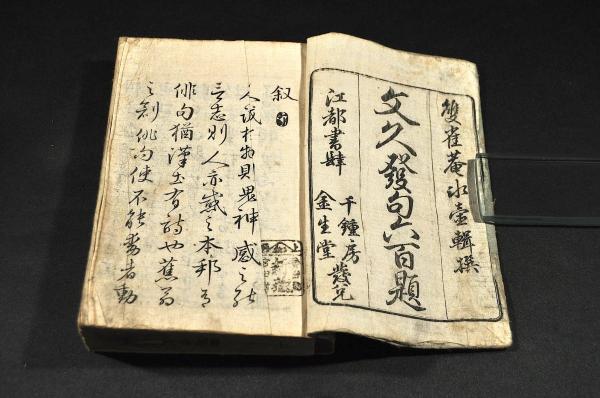 雙雀菴氷壺輯撰
文久發句六百題
江都書肆
千鍾房
金生堂
發兌
叙
人誠於物則鬼神感之能
言志則人亦感之本邦有
俳句猶漢土有詩也蕉翁
之創俳句使不能動者動